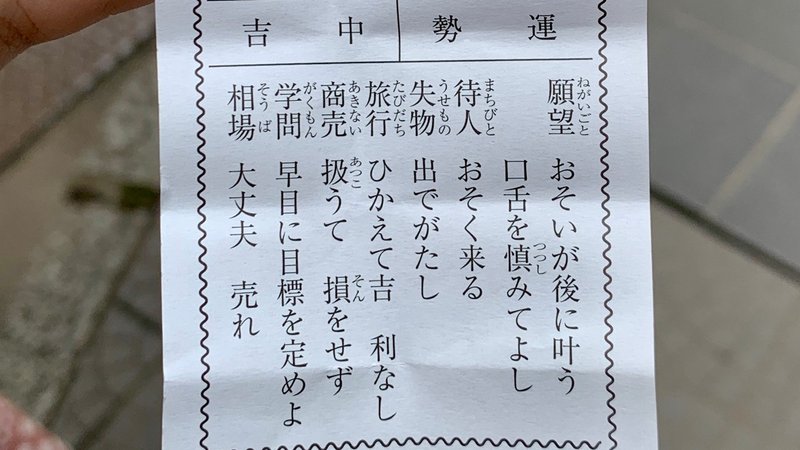 運勢
中吉
願望 おそいが後に叶う
ねがいごと
口舌を慎みてよし
つつし
待人 おそく来る
まちびと
失物 出でがたし
うせもの
旅行 ひかえて吉 利なし
たびだち
商売 扱うて 損をせず
あきない あつこ そん
学問 早目に目標を定めよ
がくもん
相場 大丈夫 売れ
そうば